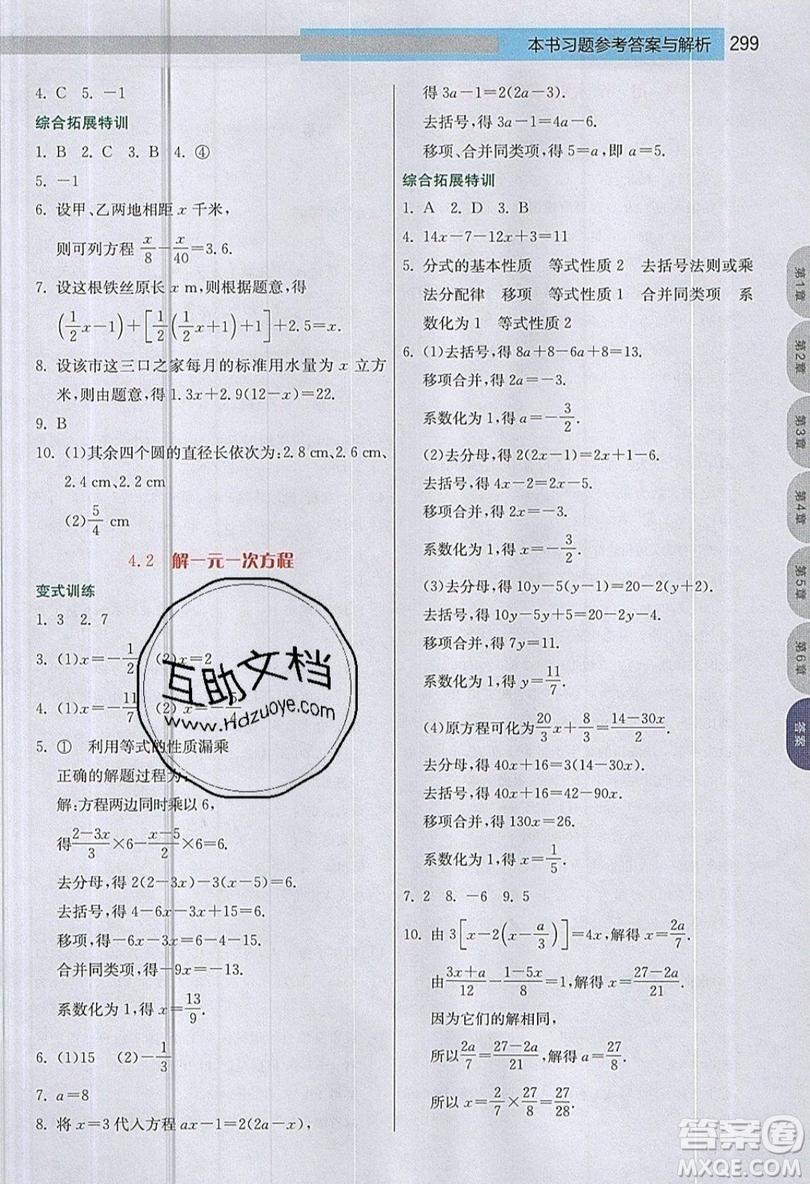 本书习题参考答案与解析 299
4. C 5. -1
综合拓展特训
1. B 2. C 3. B 4. ④
5. -1
6. 设甲、乙两地相距 x 千米,
则可列方程 x/8 - x/40 = 3.6.
7. 设这根铁丝原长 x m,根据题意,得
(1/2 x-1)+[1/2(1/2 x+1)+1]+2.5=x.
8. 设该市这三口之家每月的标准用水量为 x 立方
米,则由题意,得 1.3x+2.9(12-x)=22.
9. B
10. (1)其余四个圆的直径长依次为:2.8 cm、2.6 cm、
2.4 cm、2.2 cm
(2)5/4 cm
4.2 解一元一次方程
变式训练
1. 3 2. 7
3. (1)x=-1/2 (2)x=2
4. (1)x=-11/7 (2)x=-
5. ① 利用等式的性质漏乘
正确的解题过程为:
解:方程两边同时乘以 6,
得 (2-3x)/3 ×6 - (x-5)/2 ×6=6.
去分母,得 2(2-3x)-3(x-5)=6.
去括号,得 4-6x-3x+15=6.
移项,得-6x-3x=6-4-15.
合并同类项,得-9x=-13.
系数化为 1,得 x=13/9.
6. (1)15 (2)-1/3
7. a=8
8. 将 x=3 代入方程 ax-1=2(2a-x),
得 3a-1=2(2a-3).
去括号,得 3a-1=4a-6.
移项、合并同类项,得 5=a,即 a=5.
综合拓展特训
1. A 2. D 3. B
4. 14x-7-12x+3=11
5. 分式的基本性质 等式性质 2 去括号法则或乘
法分配律 移项 等式性质 1 合并同类项 系
数化为 1 等式性质 2
6. (1)去括号,得 8a+8+6a=13.
移项合并,得 2a=-3.
系数化为 1,得 a=-3/2.
(2)去分母,得 2(2x-1)=2x+1-6.
去括号,得 4x-2=2x+1-6.
移项合并,得 2x=-3.
系数化为 1,得 x=-3/2.
(3)去分母,得 10y-5(y-1)=20-2(y+2).
去括号,得 10y-5y+5=20-2y-4.
移项合并,得 7y=11.
系数化为 1,得 y=11/7.
(4)原方程可化为 20/3 x + 8/3 = (14-30x)/2.
去分母,得 40x+16=3(14-30x).
去括号,得 40x+16=42-90x.
移项合并,得 130x=26.
系数化为 1,得 x=1/5.
7. 2 8. -6 9. 5
10. 由 3[x-2(x-a/3)]=4x,解得 x=2a/7.
由 (3x+a)/12 - (1-5x)/8 = 1,解得 x=(27-2a)/21.
因为它们的解相同,
所以 2a/7 = (27-2a)/21,解得 a=27/8.
所以 x=2/7 × 27/8 = 27/28.
第1章
第2章
第3章
第4章
第5章
第6章
答案
互助文档
www.Hdzuoye.com
答案圈
MXQE.COM